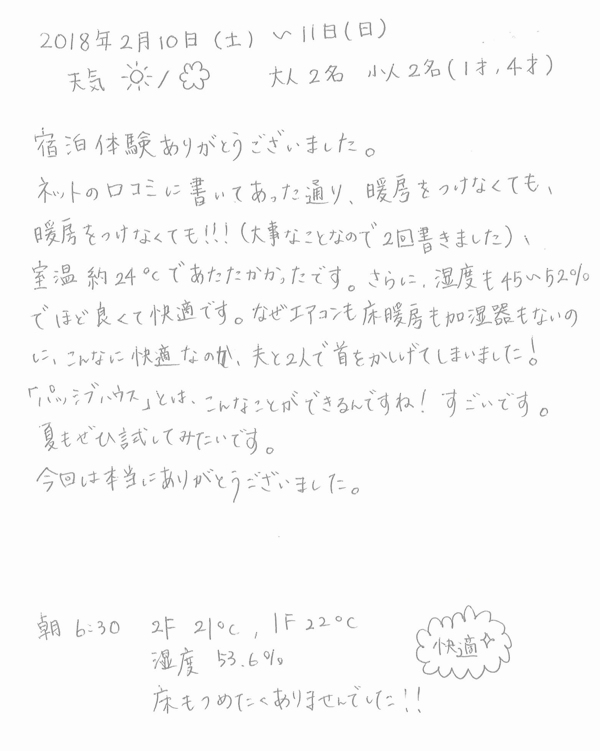 2018年2月10日(土)～11日(日)
天気 /
大人2名 小人2名(1才,4才)
宿泊体験ありがとうございました。
ネットの口コミに書いてあった通り、暖房をつけなくても、
暖房をつけなくても!!!(大事なことなので2回書きました)、
室温約24℃であたたかかったです。さらに、湿度も45～52%
でほど良くて快適です。なぜエアコンも床暖房も加湿器もないの
に、こんなに快適なのか、夫と2人で首をかしげてしまいました!
「パッシブハウス」とは、こんなことができるんですね! すごいです。
夏もぜひ試してみたいです。
今回は本当にありがとうございました。
朝 6:30 2F 21℃, 1F 22℃
湿度 53.6%
快適
床もつめたくありませんでした!!